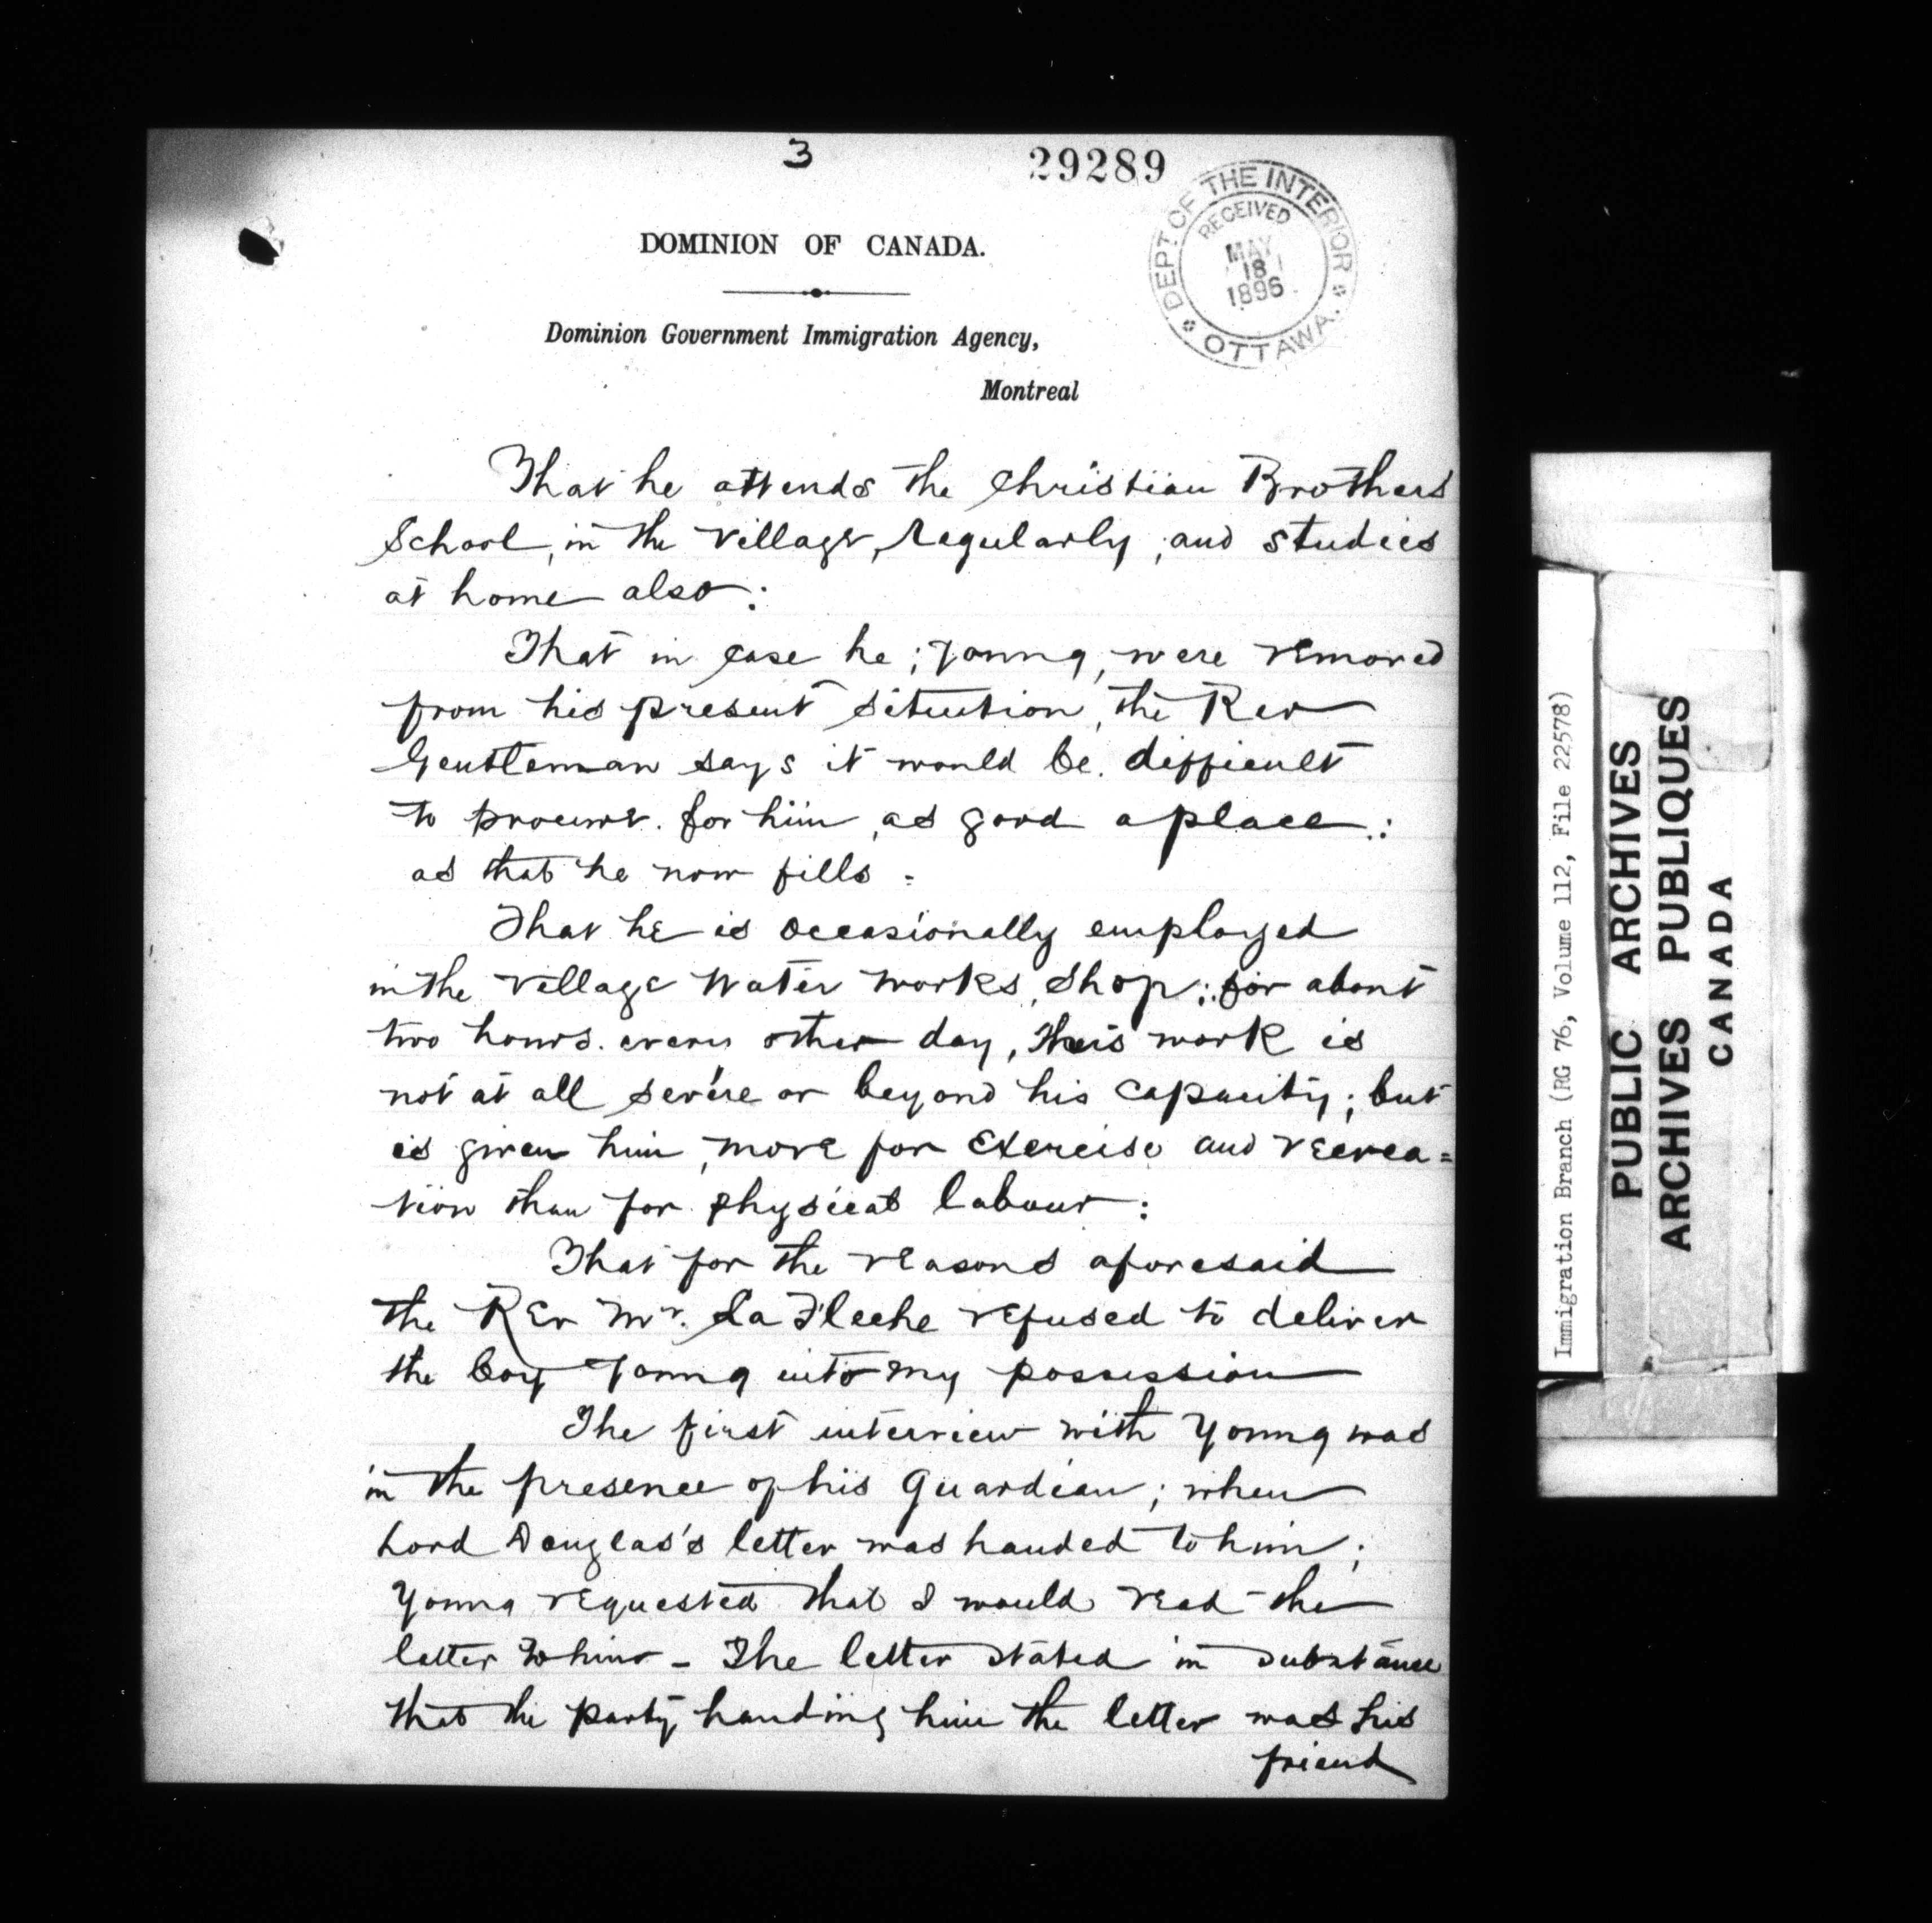 3
29289
DEPT OF THE INTERIOR
RECEIVED
MAY
18
1896
OTTAWA.
DOMINION OF CANADA.
Dominion Government Immigration Agency,
Montreal
That he attends the Christian Brothers
School, in the Village, regularly, and studies
at home also:
That in case he; Young, were removed
from his present situation, the Rev
Gentleman says it would be difficult
to procure for him, as good a place:
as that he now fills:
That he is occasionally employed
in the Village Water Works, Shop; for about
two hours every other day, this work is
not at all severe or beyond his capacity; but
is given him, more for Exercise and recrea=
tion than for physical labour:
That for the reasons aforesaid
the Rev Mr. La Fleche refused to deliver
the boy Young into my possession
The first interview with Young was
in the presence of his Guardian; when
Lord Douglas's letter was handed to him;
Young requested that I would read the
letter to him - The letter stated in substance
that the party handing him the letter was his
friend
Immigration Branch (RG 76, Volume 112, File 22578)
PUBLIC ARCHIVES
ARCHIVES PUBLIQUES
CANADA